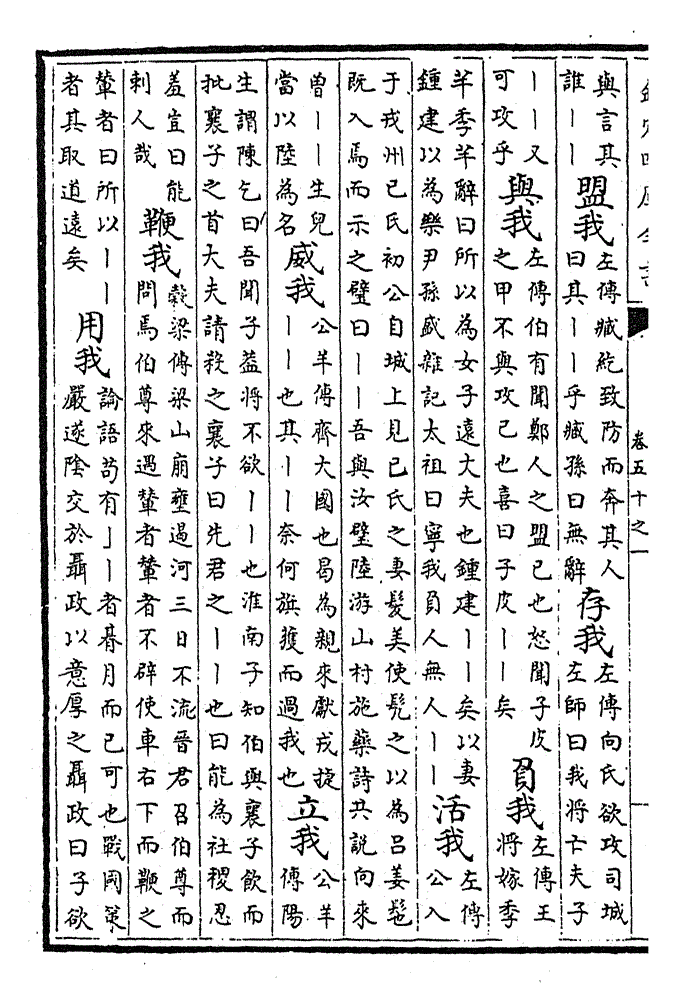 欽定四庫全書
卷五十之一
與言其
誰丨丨
盟我
左傳臧紇致防而奔其人
曰其丨丨乎臧孫曰無辭
存我
左傳向氏欲攻司城
左師曰我將亡夫子
丨丨又
可攻乎
與我
左傳伯有聞鄭人之盟已也怒聞子皮
之甲不與攻已也喜曰子皮丨丨矣
負我
左傳王
將嫁季
芊季芊辭曰所以為女子遠丈夫也鍾建丨丨矣以妻
鍾建以為樂尹孫盛雜記太祖曰寧我負人無人丨丨
活我
左傳
公入
于戎州已氏初公自城上見已氏之妻髮美使髠之以為吕姜髢
既入焉而示之璧曰丨丨吾與汝璧陸游山村施藥詩共說向來
曾丨丨生兒
當以陸為名
威我
公羊傳齊大國也曷為親來獻戎捷
丨丨也其丨丨奈何旗獲而過我也
立我
公羊
傳陽
生謂陳乞曰吾聞子葢將不欲丨丨也淮南子知伯與襄子飲而
批襄子之首大夫請殺之襄子曰先君之丨丨也曰能為社稷忍
羞豈曰能
刺人哉
鞭我
穀梁傳梁山崩壅遏河三日不流晉君召伯尊而
問焉伯尊來遇輦者輦者不辟使車右下而鞭之
輦者曰所以丨丨
者其取道遠矣
用我
論語苟有丨丨者朞月而已可也戰國策
嚴遂陰交於聶政以意厚之聶政曰子欲